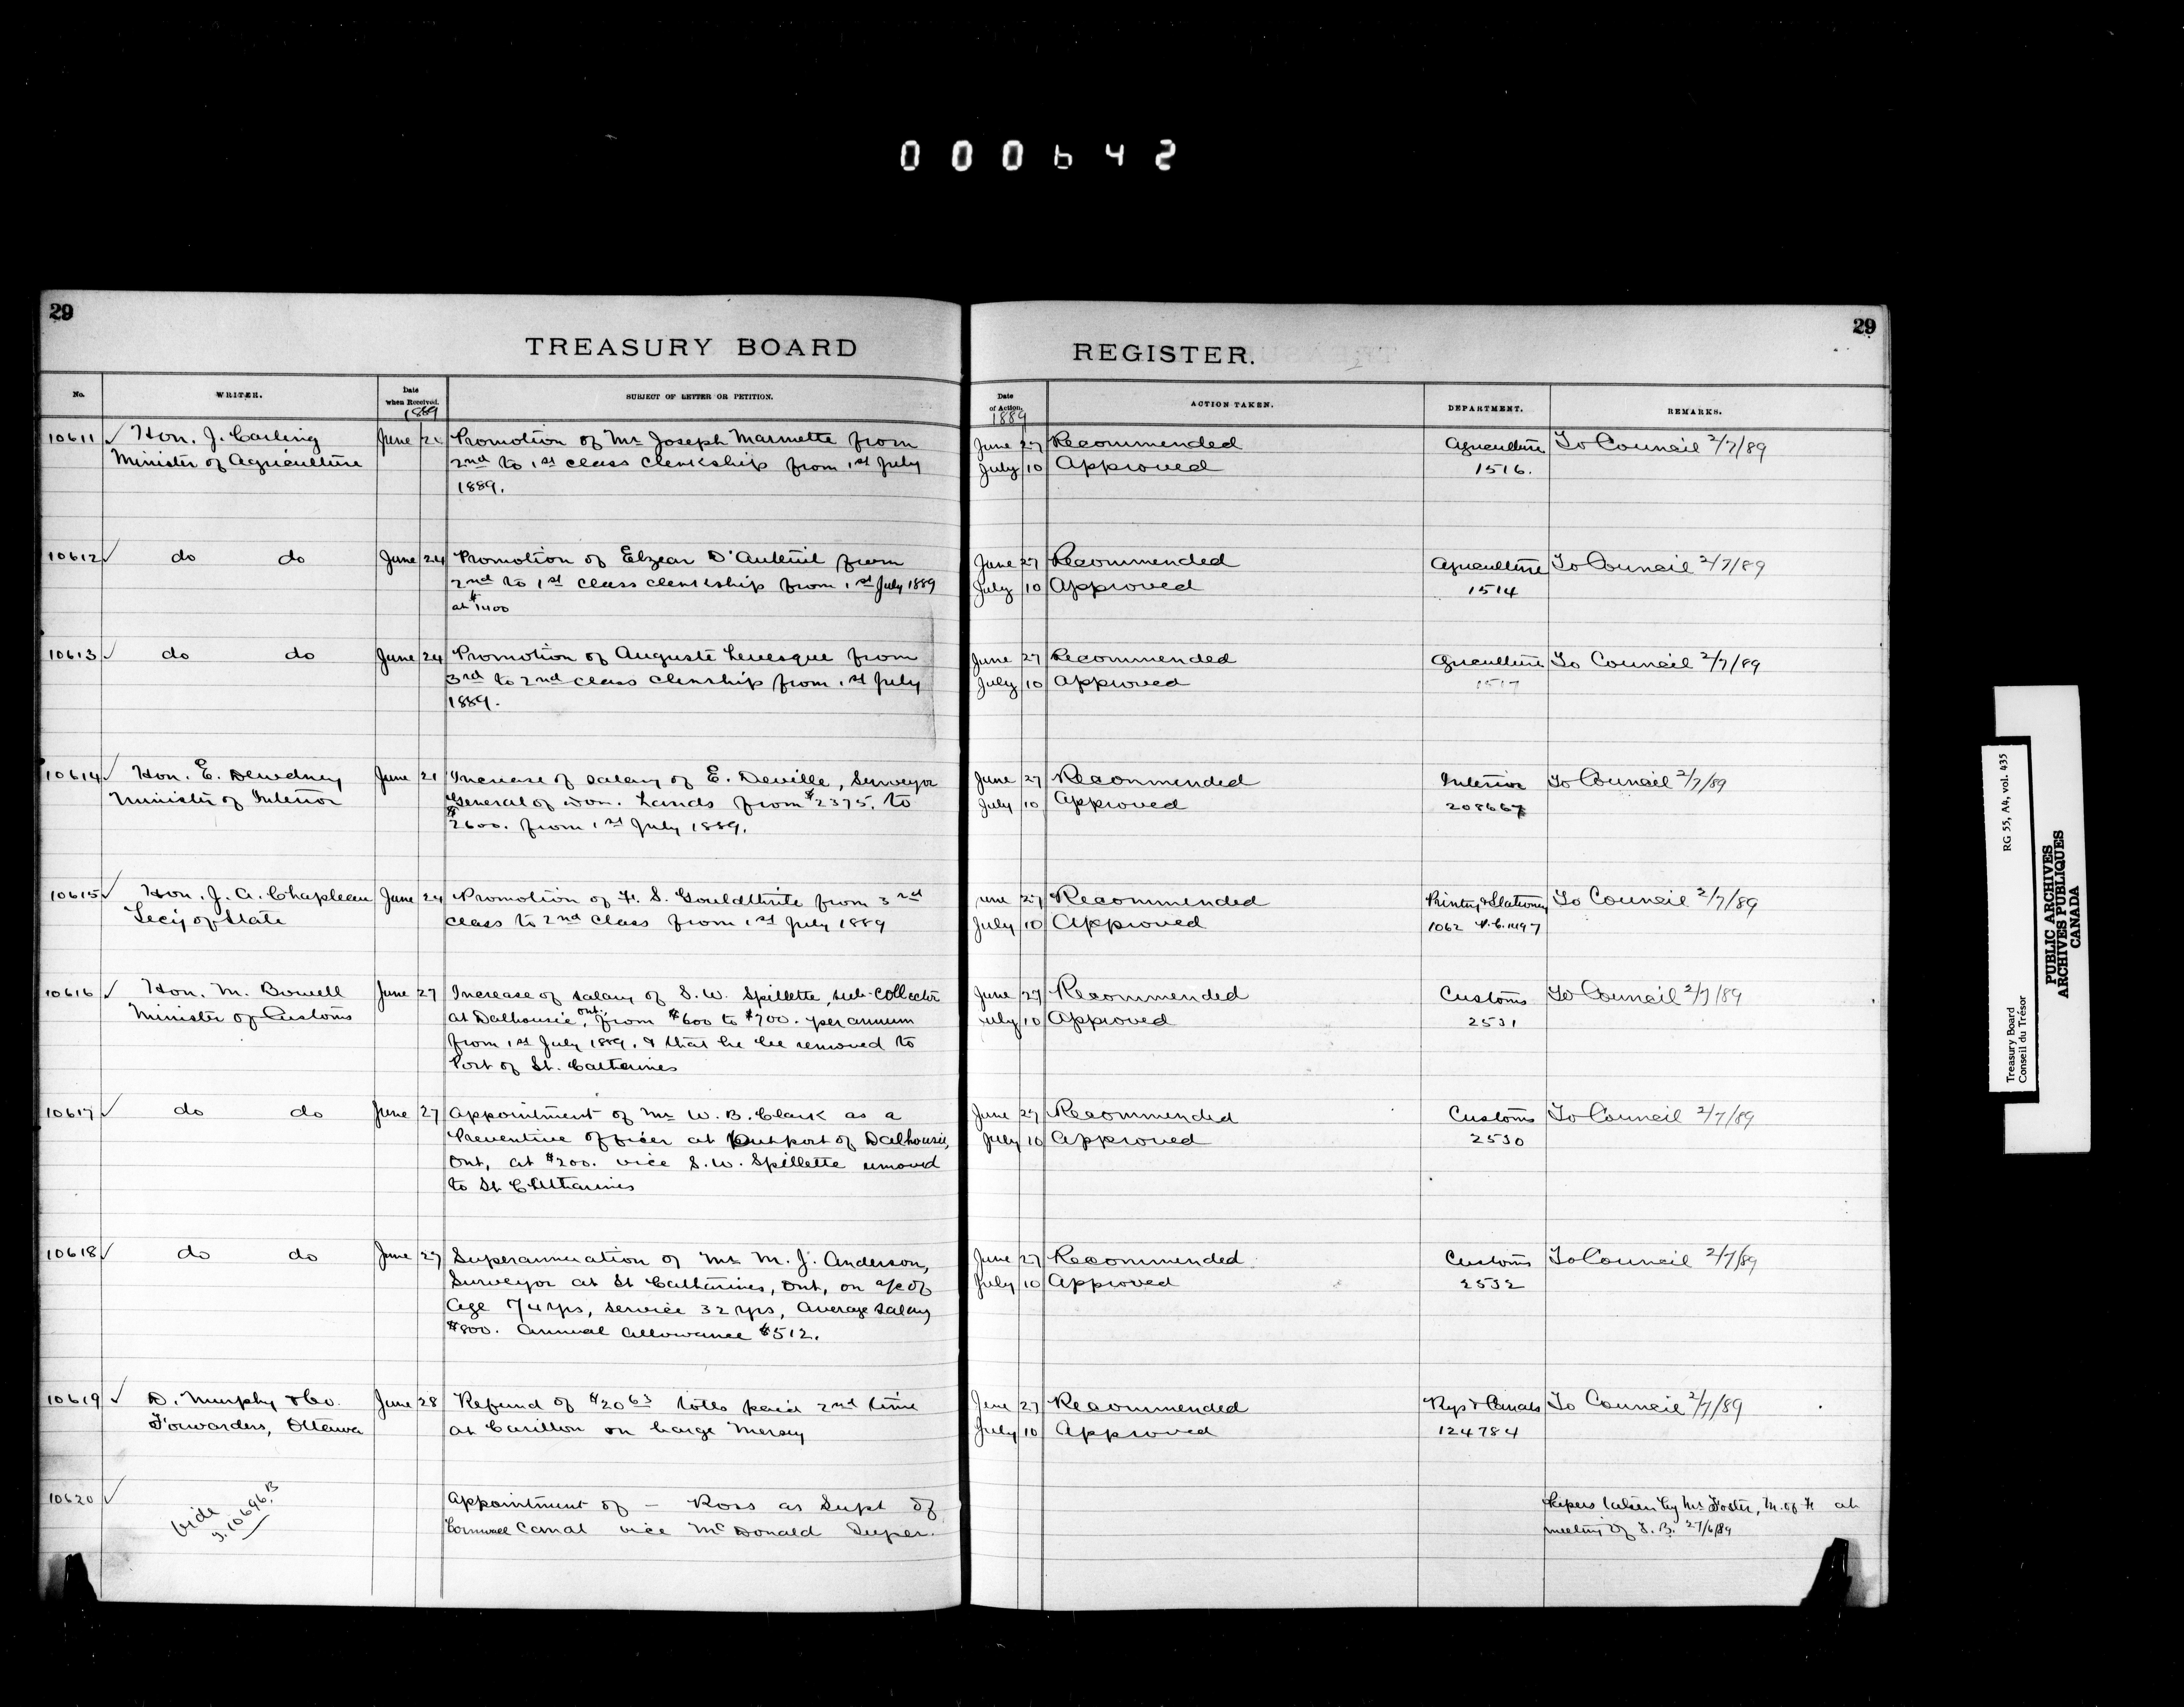 000642
29
29
TREASURY BOARD
REGISTER.
No.
WRITER.
Date when Received.
1889
SUBJECT OF LETTER OR PETITION.
Date of Action.
1889
ACTION TAKEN.
DEPARTMENT.
REMARKS.
10611 ✓ Hon. J. Carling June Promotion of Mr Joseph Marmette from June 27 Recommended Agriculture To Council 2/7/89
Minister of Agriculture 2nd to 1st class clerkship from 1st July July 10 Approved 1516.
1889.
10612 ✓ do do June 24 Promotion of Elzear D'Auteuil from June 27 Recommended Agriculture To Council 2/7/89
2nd to 1st class clerkship from 1st July 1889 July 10 Approved 1514
at $1400
10613 ✓ do do June 24 Promotion of Auguste Levesque from June 27 Recommended Agriculture To Council 2/7/89
3rd to 2nd class clerkship from 1st July July 10 Approved 1517
1889.
10614 ✓ Hon. E. Dewdney June 21 Increase of salary of E. Deville, Surveyor June 27 Recommended Interior To Council 2/7/89
Minister of Interior General of Dom. Lands from $2375. to July 10 Approved 208667
$2600. from 1st July 1889.
10615 ✓ Hon. J. A. Chapleau June 24 Promotion of F. S. Gouldthrite from 3rd June 27 Recommended Printing & Stationery To Council 2/7/89
Secy of State class to 2nd class from 1st July 1889 July 10 Approved 1062 P.C. 1497
10616 ✓ Hon. M. Bowell June 27 Increase of salary of S. W. Spillette, sub-Collector June 27 Recommended Customs To Council 2/7/89
Minister of Customs at Dalhousie, Ont. from $600 to $700. per annum July 10 Approved 2531
from 1st July 1889. & that he be removed to
Port of St. Catharines
10617 ✓ do do June 27 Appointment of Mr W. B. Clark as a June 27 Recommended Customs To Council 2/7/89
Preventive Officer at Outport of Dalhousie, July 10 Approved 2530
Ont, at $200. vice S. W. Spillette removed
to St Catharines
10618 ✓ do do June 27 Superannuation of Mr M. J. Anderson, June 27 Recommended Customs To Council 2/7/89
Surveyor at St Catharines, Ont, on a/c of July 10 Approved 2532
Age 74 yrs, service 32 yrs, Average Salary
$800. Annual Allowance $512.
10619 ✓ D. Murphy & Co. June 28 Refund of $20 63 tolls paid 2nd time June 27 Recommended Rys & Canals To Council 2/7/89
Forwarders, Ottawa at Carillon on barge Mersey July 10 Approved 124784
10620 ✓ Vide Appointment of – Ross as Supt of Papers taken by Mr Foster, M. of F. at
10696 B Cornwall Canal vice McDonald Super. meeting of T. B. 27/6/89
RG 55, A4, vol. 435
Treasury Board
Conseil du Trésor
PUBLIC ARCHIVES
ARCHIVES PUBLIQUES
CANADA